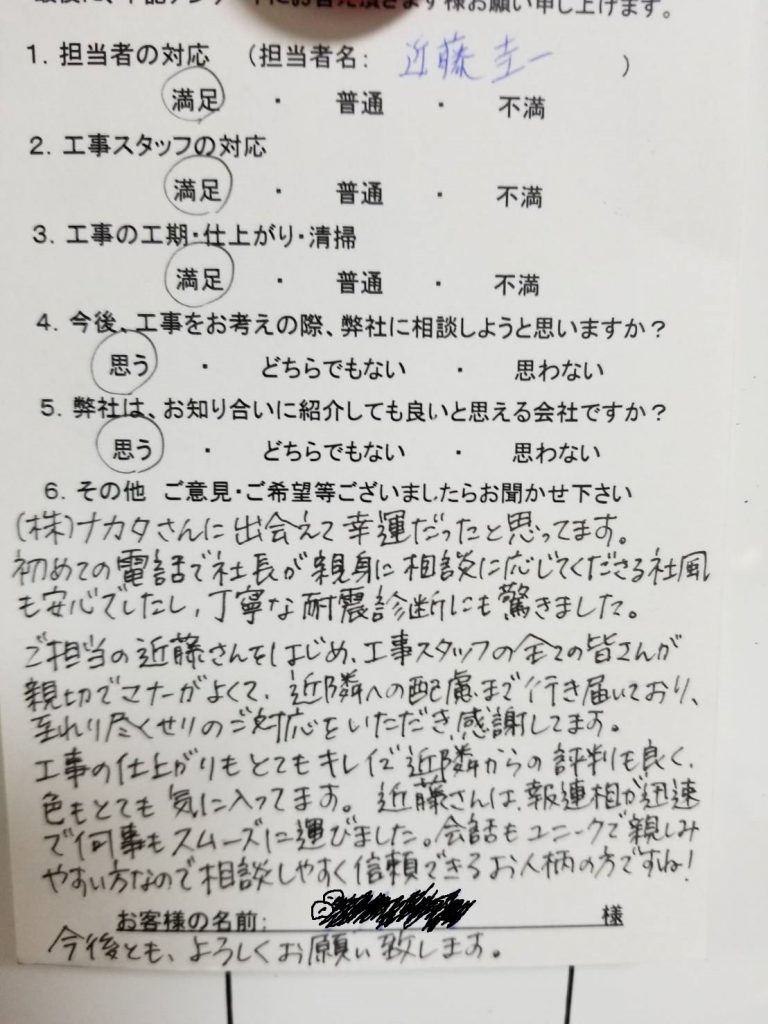 最後に、下記アンケートにお答え頂きます様お願い申し上げます。
1. 担当者の対応 (担当者名: 近藤圭一 )
満足 ・ 普通 ・ 不満
2. 工事スタッフの対応
満足 ・ 普通 ・ 不満
3. 工事の工期・仕上がり・清掃
満足 ・ 普通 ・ 不満
4. 今後、工事をお考えの際、弊社に相談しようと思いますか?
思う ・ どちらでもない ・ 思わない
5. 弊社は、お知り合いに紹介しても良いと思える会社ですか?
思う ・ どちらでもない ・ 思わない
6. その他 ご意見・ご希望等ございましたらお聞かせ下さい
(株)ナカタさんに出会えて幸運だったと思ってます。
初めての電話で社長が親身に相談に応じてくださる社風
も安心でしたし,丁寧な耐震診断にも驚きました。
ご担当の近藤さんをはじめ、工事スタッフの全ての皆さんが
親切でマナーがよくて、近隣への配慮まで行き届いており、
至れり尽くせりのご対応をいただき、感謝してます。
工事の仕上がりもとてもキレイで近隣からの評判も良く、
色もとても気に入ってます。近藤さんは、報連相が迅速
で何事もスムーズに運びました。会話もユニークで親しみ
やすい方なので相談しやすく信頼できるお人柄の方ですね!
お客様の名前: 様
今後とも、よろしくお願い致します。